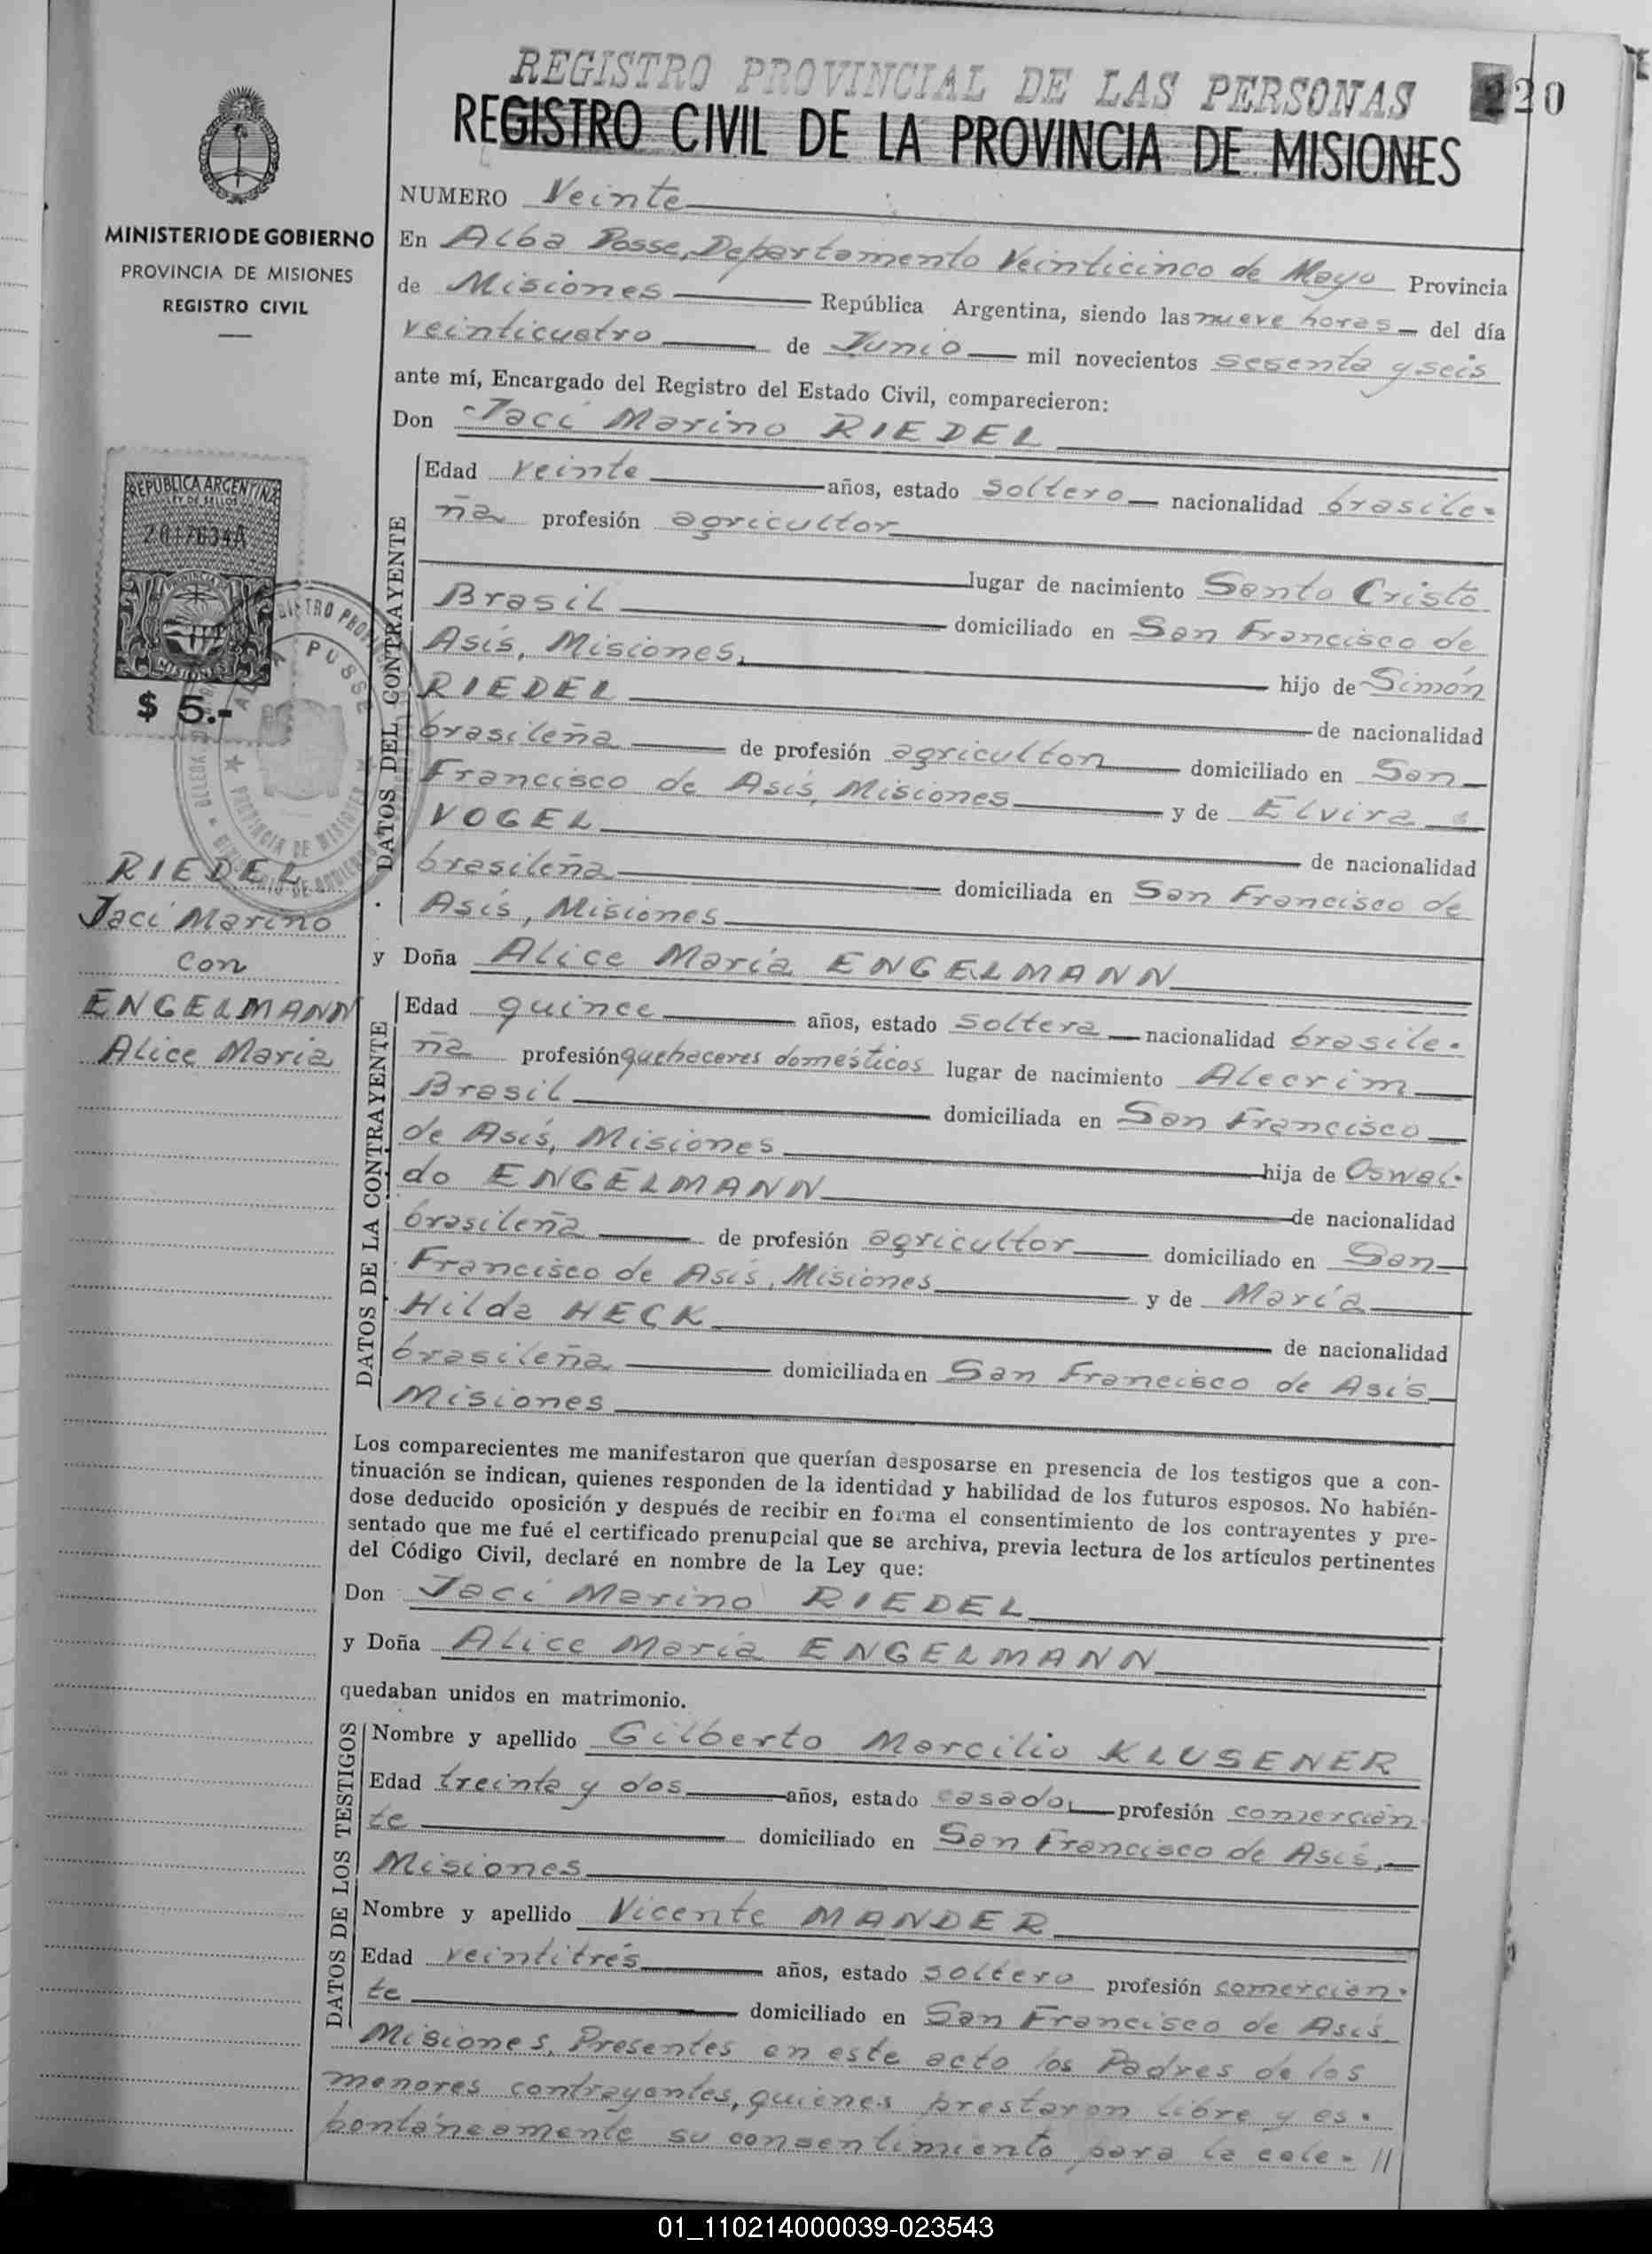 REGISTRO PROVINCIAL DE LAS PERSONAS
220
REGISTRO CIVIL DE LA PROVINCIA DE MISIONES
MINISTERIO DE GOBIERNO
PROVINCIA DE MISIONES
REGISTRO CIVIL
NUMERO Veinte
En Alba Posse, Departamento Veinticinco de Mayo Provincia
de Misiones República Argentina, siendo las nueve horas del día
veinticuatro de Junio mil novecientos sesenta y seis
ante mí, Encargado del Registro del Estado Civil, comparecieron:
Don Jací Marino RIEDEL
REPUBLICA ARGENTINA
LEY DE SELLOS
2017634A
MISIONES
$ 5.-
DATOS DEL CONTRAYENTE
Edad veinte años, estado soltero nacionalidad brasile-
ña profesión agricultor
lugar de nacimiento Santo Cristo
Brasil domiciliado en San Francisco de
Asís, Misiones, hijo de Simón
RIEDEL de nacionalidad
brasileña de profesión agricultor domiciliado en San
Francisco de Asís, Misiones y de Elvira
VOGEL de nacionalidad
brasileña domiciliada en San Francisco de
Asís, Misiones
RIEDEL
Jací Marino
con
ENGELMANN
Alice María
y Doña Alice María ENGELMANN
DATOS DE LA CONTRAYENTE
Edad quince años, estado soltera nacionalidad brasile-
ña profesión quehaceres domésticos lugar de nacimiento Alecrim
Brasil domiciliada en San Francisco
de Asís, Misiones hija de Oswal-
do ENGELMANN de nacionalidad
brasileña de profesión agricultor domiciliado en San
Francisco de Asís, Misiones y de María
Hilda HECK de nacionalidad
brasileña domiciliada en San Francisco de Asís
Misiones
Los comparecientes me manifestaron que querían desposarse en presencia de los testigos que a con-
tinuación se indican, quienes responden de la identidad y habilidad de los futuros esposos. No habién-
dose deducido oposición y después de recibir en forma el consentimiento de los contrayentes y pre-
sentado que me fué el certificado prenupcial que se archiva, previa lectura de los artículos pertinentes
del Código Civil, declaré en nombre de la Ley que:
Don Jací Marino RIEDEL
y Doña Alice María ENGELMANN
quedaban unidos en matrimonio.
DATOS DE LOS TESTIGOS
Nombre y apellido Gilberto Marcilio KLUSENER
Edad treinta y dos años, estado casado, profesión comercian
te domiciliado en San Francisco de Asís,
Misiones
Nombre y apellido Vicente MANDER
Edad veintitrés años, estado soltero profesión comercian-
te domiciliado en San Francisco de Asís
Misiones. Presentes en este acto los Padres de los
menores contrayentes, quienes prestaron libre y es-
pontáneamente su consentimiento para la cele- //
01_110214000039-023543